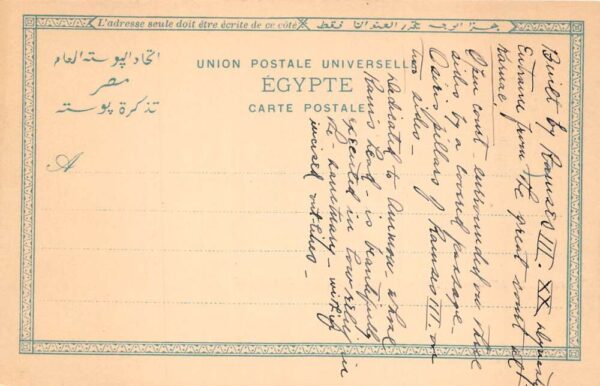 L'adresse seule doit être écrite de ce côté
اتحاد البوسته العام
مصر
تذكرة بوسته
UNION POSTALE UNIVERSELLE
ÉGYPTE
CARTE POSTALE
A
Built by Ramses III. XX Dynasty
Entrance from the great court at
Karnac.
Open court surrounded on three
sides by a covered passage.
Osiris pillars of Ramses III. on
two sides.
Dedicated to Ammon whose
Rams head is beautifully
executed in low relief in
the sanctuary - with
incised outlines -